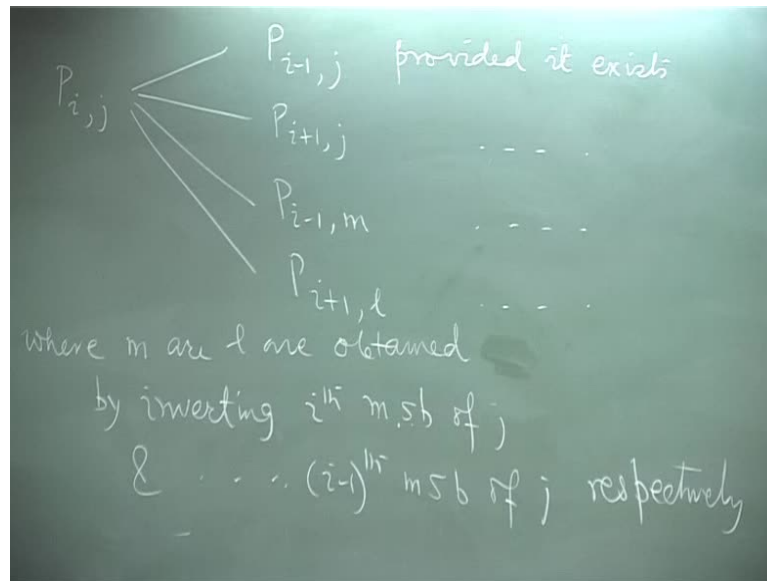 P_{i,j}
P_{i-1,j} provided it exists
P_{i+1,j} - - - -
P_{i-1,m} - - - -
P_{i+1,l} - - - -
where m are l are obtained
by inverting i^{th} m.s.b of j
& - - - - (i-1)^{th} m s b of j respectively